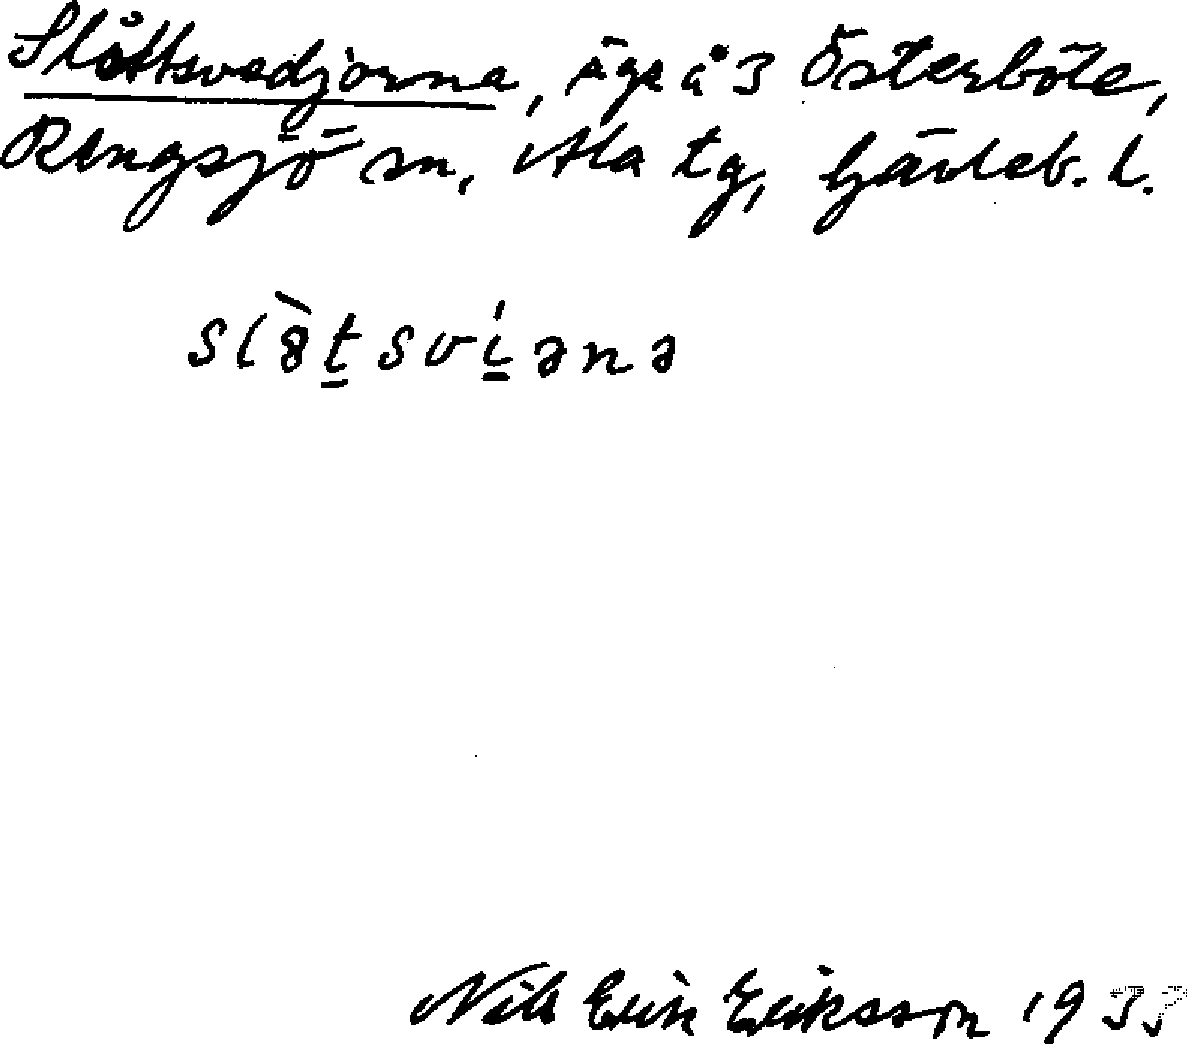 Slåttsvedjorna, äga å 3 Österböle,
Rengsjö sn, Ala tg, Gävleb. l.
slȍt̲sví̲ənə
Nils Erik Eriksson 1933